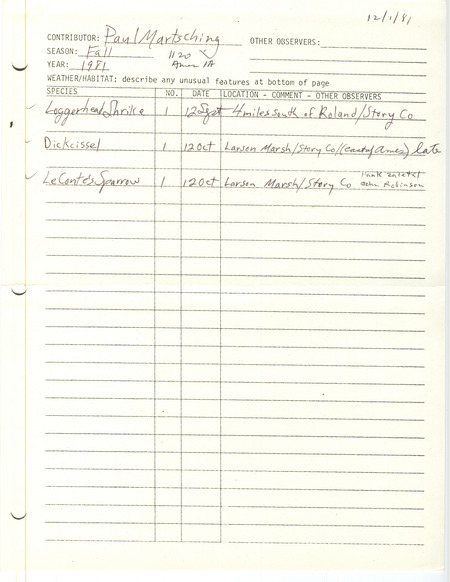 12/1/81
CONTRIBUTOR: Paul Martsching OTHER OBSERVERS:
SEASON: Fall 1120
YEAR: 1981 Ames IA
WEATHER/HABITAT: describe any unusual features at bottom of page
SPECIES NO. DATE LOCATION - COMMENT - OTHER OBSERVERS
Loggerhead Shrike 1 12 Sept 4 miles south of Roland/Story Co
Dickcissel 1 12 Oct Larson Marsh/Story Co/(east of Ames) late
LeConte's Sparrow 1 12 Oct Larson Marsh/Story Co Hank Zaletel
John Robinson